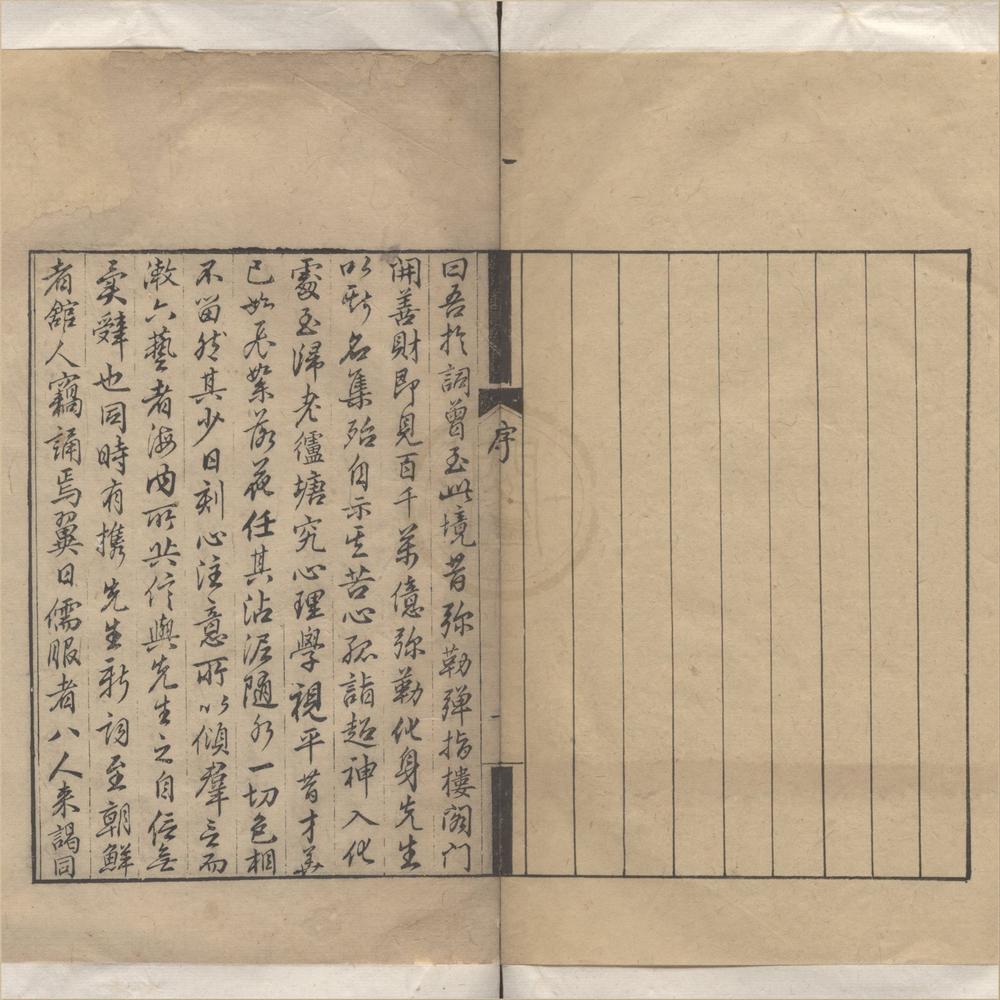 序
曰吾於詞曾至此境昔弥勒彈指樓閣门
開善財即見百千萬億弥勒化身先生
以斯名集殆自示其苦心孤詣超神入化
處至歸老壚塘究心理學視平昔才華
已如飛絮落花任其沾泥隨水一切色相
不留然其少日刻心注意所以傾羣言而
漱六藝者海内所共信與先生之自信無
異辭也同時有攜先生新词至朝鮮
者舘人竊誦焉翼日儒服者八人来謁同